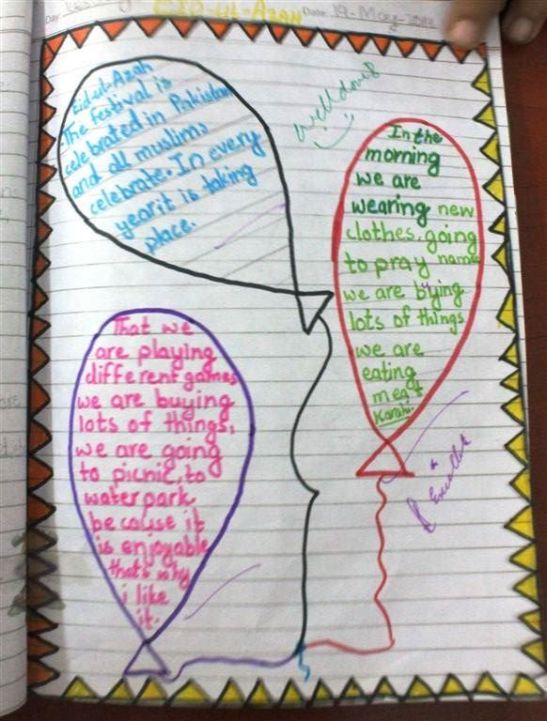 EID-UL-AZAH
Date: 19-May-
well done
Eid-ul-Azah
The festival is
celebrated in Pakistan
and all muslims
celebrate. In every
year it is taking
place.
In the
morning
we are
wearing new
clothes, going
to pray namaz
we are buying
lots of things
we are
eating
meat
Karahi.
That we
are playing
different games
we are buying
lots of things,
we are going
to picnic, to
water park
because it
is enjoyable
that's why
i like
it.
Excellent